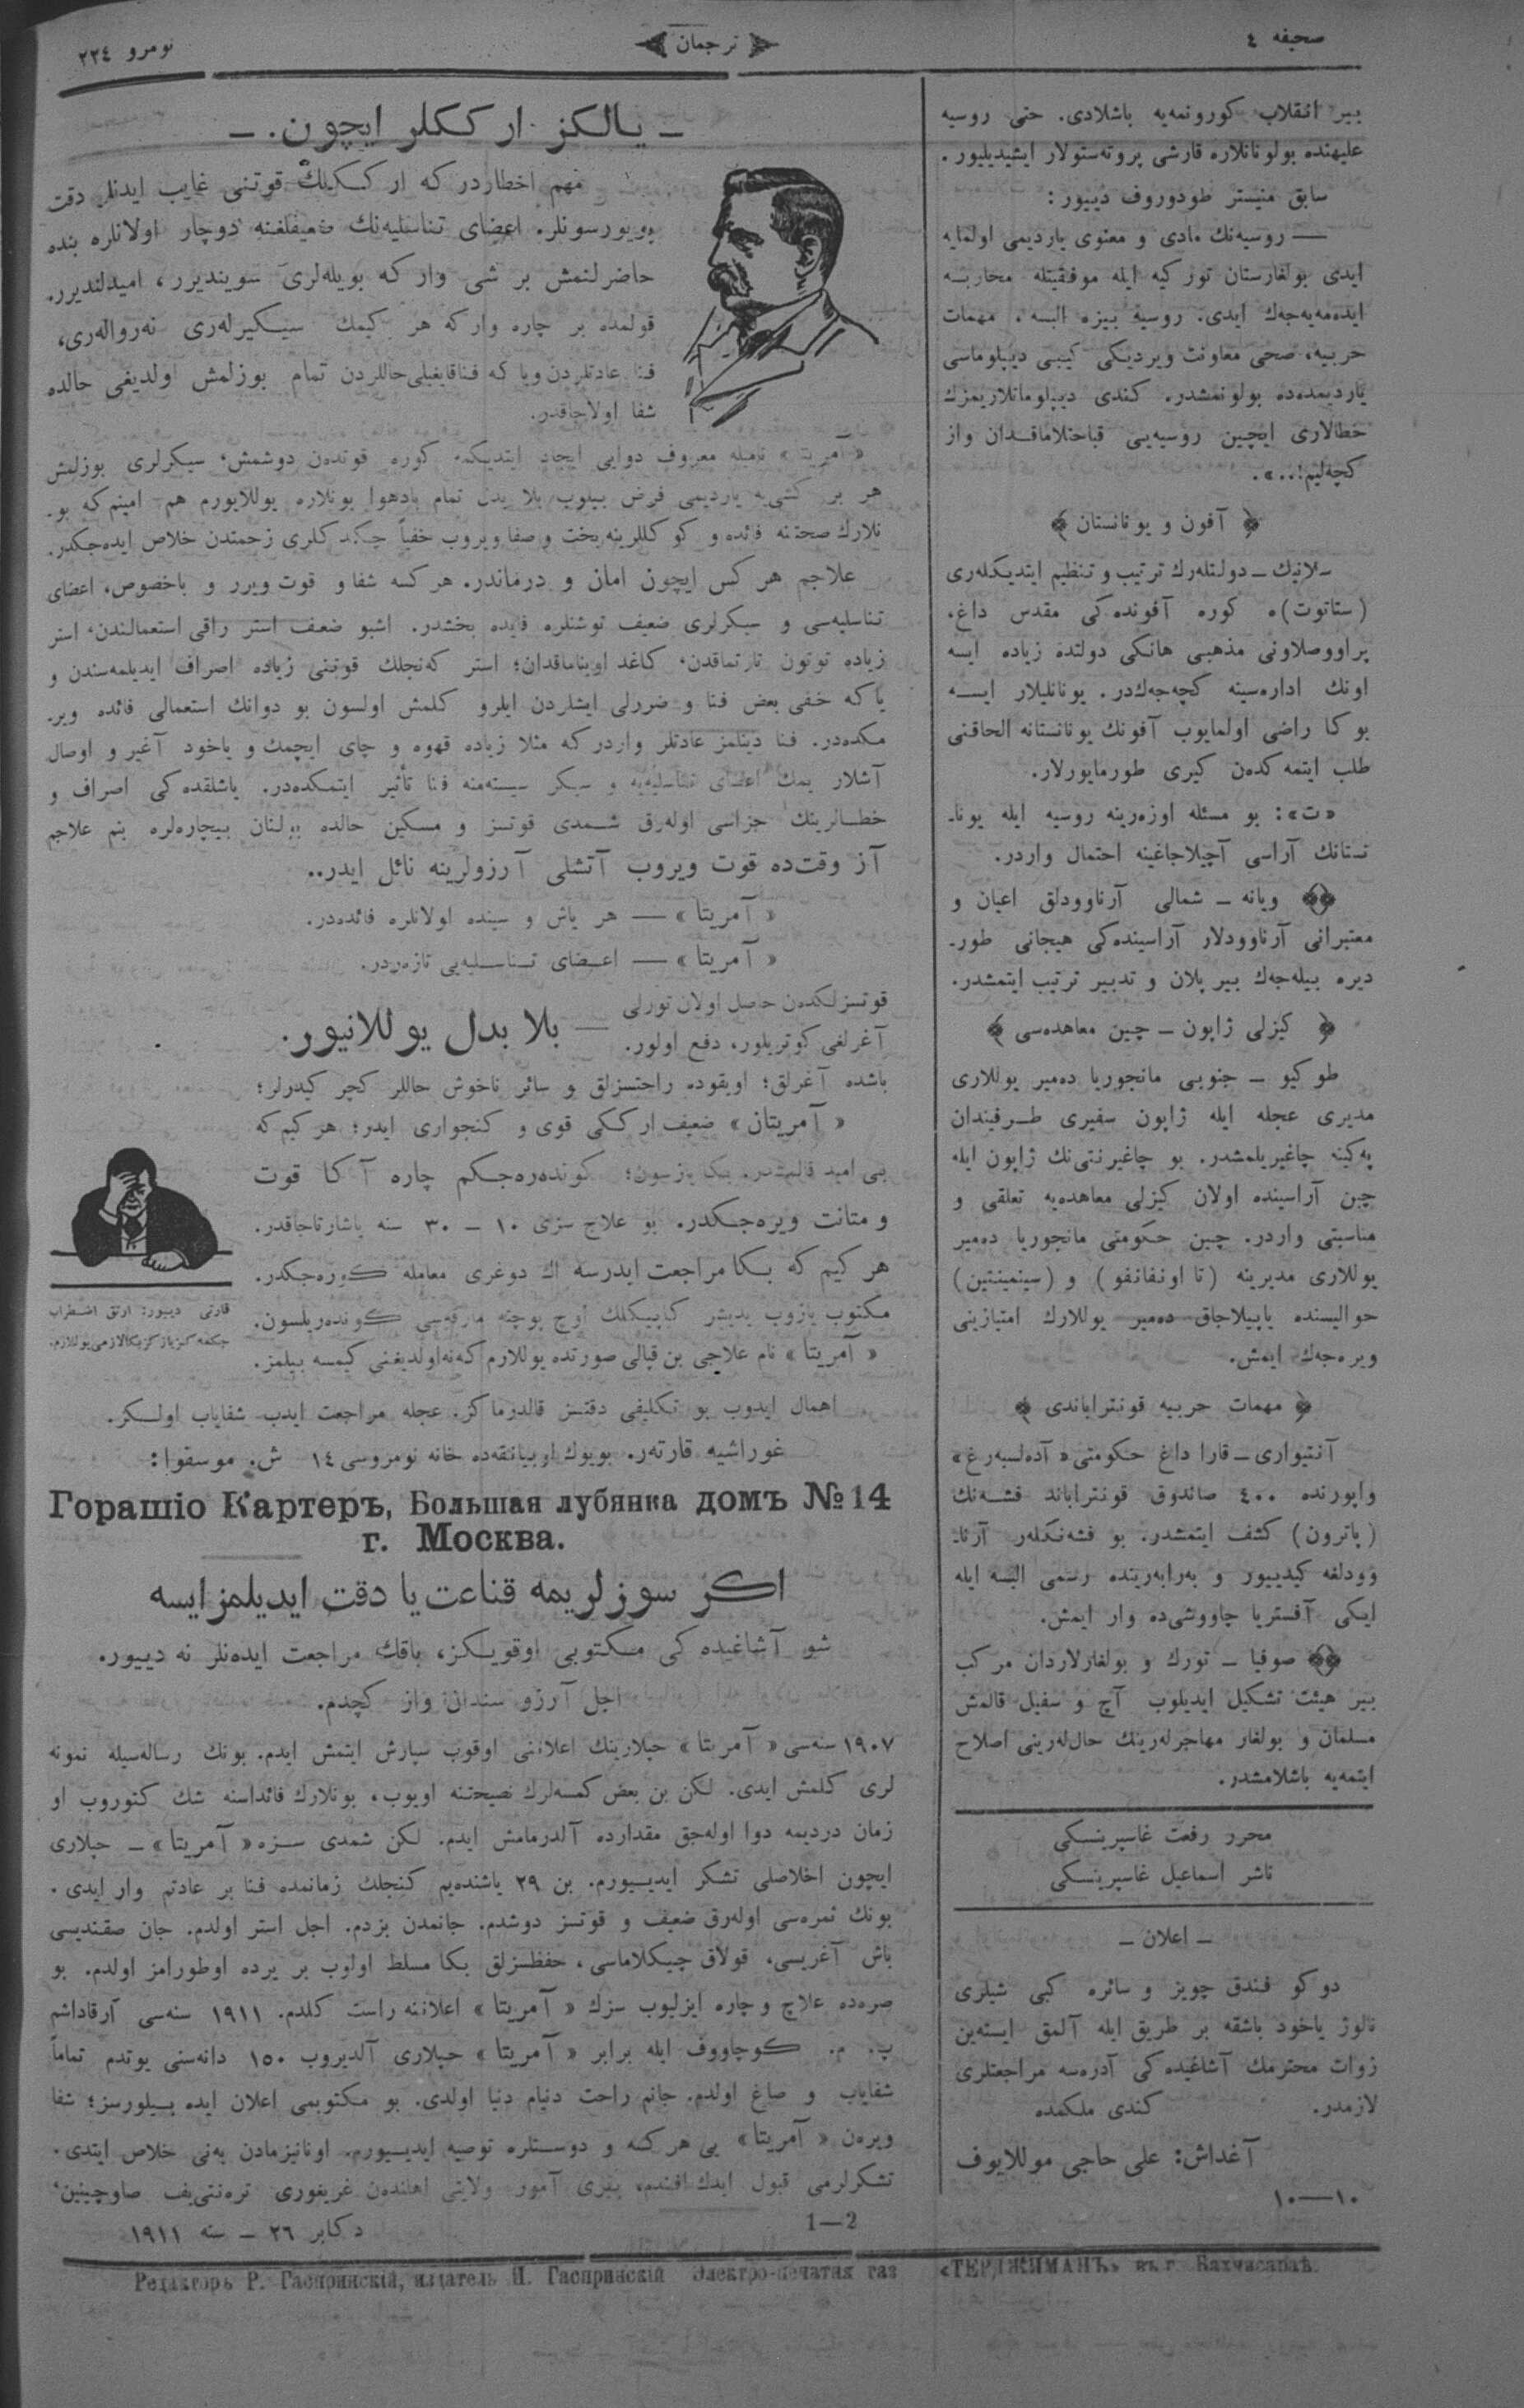 صحيفه ٤
ترجمان
نومرو ٢٢٤
بير انقلاب كورونمه‌يه باشلادی. حتی روسيه
عليهنده بولونانلاره قارشی پروته‌ستولار ايشيديليور.
سابق منيستر طودوروف دييور:
— روسيه‌نك مادی و معنوی يارديمی اولمايه
ايدی بولغارستان توركيه ايله موفقيتله محاربه
ايده‌مه‌يه‌جك ايدی. روسيه بيزه البسه، مهمات
حربيه، صحی معاونت ويرديكی كيبی ديپلوماسی
يارديمده‌ده بولونمشدر. كندی ديپلوماتلاريمزك
خطالاری ايچين روسيه‌يی قباحتلاماقدان واز
كچه‌ليم!..».
﴿ آفون و يونانستان ﴾
سلانيك ـ دولتله‌رك ترتيب و تنظيم ايتديكله‌ری
(ستاتوت)ه كوره آفونده‌كی مقدس داغ،
پراووصلاونی مذهبی هانكی دولتده زياده ايسه
اونك اداره‌سينه كچه‌جه‌كدر. يونانليلار ايسه
بوكا راضی اولمايوب آفونك يونانستانه الحاقنی
طلب ايتمه‌كده‌ن كيری طورمايورلار.
«ت»: بو مسئله اوزه‌رينه روسيه ايله يونا-
نستانك آراسی آچيلاجاغينه احتمال واردر.
ويانه ـ شمالی آرناوودلق اعيان و
معتبرانی آرناوودلار آراسينده‌كی هيجانی طور-
ديره بيله‌جه‌ك بير پلان و تدبير ترتيب ايتمشدر.
﴿ كيزلی ژاپون ـ چين معاهده‌سی ﴾
طوكيو ـ جنوبی مانجوريا ده‌مير يوللاری
مديری عجله ايله ژاپون سفيری طرفيندان
په‌كينه چاغيريلمشدر. بو چاغيرنتی‌نك ژاپون ايله
چين آراسينده اولان كيزلی معاهده‌يه تعلقی و
مناسبتی واردر. چين حكومتی مانجوريا ده‌مير
يوللاری مديرينه (تا اونفانفو) و (سينمينتين)
حواليسنده ياپيلاجاق ده‌مير يوللارك امتيازينی
ويره‌جه‌ك ايمش.
﴿ مهمات حربيه قونتراباندی ﴾
آنتيواری ـ قارا داغ حكومتی «آده‌لسبه‌رغ»
واپورنده ٤٠٠ صاندوق قونتراباند فشه‌نك
(پاترون) كشف ايتمشدر. بو فشه‌نكله‌ر آرنا-
وودلغه كيدييور و به‌رابه‌رينده رسمی البسه ايله
ايكی آفستريا چاووشی‌ده وار ايمش.
صوفيا ـ تورك و بولغارلاردان مركب
بير هيئت تشكيل ايديلوب آچ و سفيل قالمش
مسلمان و بولغار مهاجرله‌رينك حال‌له‌رينی اصلاح
ايتمه‌يه باشلامشدر.
محرر رفعت غاسپرينسكی
ناشر اسماعيل غاسپرينسكی
ـ اعلان ـ
دوكو فندق چويز و سائره كبی شيلری
نالوژ ياخود باشقه بر طريق ايله آلمق ايسته‌ين
زوات محترمك آشاغيده‌كی آدره‌سه مراجعتلری
لازمدر. كندی ملكمده
آغداش: علی حاجی موللايوف
١٠—١٠
ـ يالكز ارككلر ايچون. ـ
مهم اخطاردر كه ارككلك قوتنی غايب ايدنلر دقت
بويورسونلر. اعضای تناسليه‌نك ضعيفلغنه دوچار اولانلره بنده
حاضرلنمش بر شی وار كه بويله‌لری سوينديرر، اميدلنديرر.
قولمده بر چاره واركه هر كيمك سيكيرله‌ری نه‌رواله‌ری،
فنا عادتلردن ويا كه فناقايغيلی‌حاللردن تمام بوزلمش اولديغی حالده
شفا اولاجاقدر.
«آمريتا» نامله معروف دوايی ايجاد ايتديكمه كوره قوتدن دوشمش، سيكرلری بوزلمش
هر بر كشی‌يه يارديمی فرض بيلوب بلا بدل تمام بادهوا بونلاره يوللايورم هم امينم كه بو-
نلارك صحتنه فائده و كوكللرينه بخت و صفا ويروب خفياً چكدكلری زحمتدن خلاص ايده‌جكدر.
علاجم هر كس ايچون امان و درماندر. هر كسه شفا و قوت ويرر و باخصوص، اعضای
تناسليه‌سی و سيكرلری ضعيف توشنلره فايده بخشدر. اشبو ضعف استر راقی استعمالندن، استر
زياده توتون تارتماقدن، كاغد اويناماقدان؛ استر كه‌نجلك قوتنی زياده اصراف ايديلمه‌سندن و
ياكه خفی بعض فنا و ضررلی ايشلردن ايلرو كلمش اولسون بو دوانك استعمالی فائده وير-
مكده‌در. فنا دينلمز عادتلر واردر كه مثلا زياده قهوه و چای ايچمك و ياخود آغير و اوصال
آشلار يمك اعضای تناسليه‌يه و سيكر سيسته‌منه فنا تأثير ايتمكده‌در. ياشلقده‌كی اصراف و
خطالرينك جزاسی اوله‌رق شمدی قوتسز و مسكين حالده بولنان بيچاره‌لره بنم علاجم
آز وقت‌ده قوت ويروب آتشلی آرزولرينه نائل ايدر..
«آمريتا» — هر ياش و سينده اولانلره فائده‌در.
«آمريتا» — اعضای تناسليه‌يی تازه‌ردر.
قوتسزلكده‌ن حاصل اولان تورلی
آغرلغی كوتريلور، دفع اولور. — بلا بدل يوللانيور.
باشده آغرلق؛ اويقوده راحتسزلق و سائر ناخوش حاللر كچر كيدرلر؛
«آمريتان» ضعيف ارككی قوی و كنجواری ايدر؛ هر كيم كه
بی اميد قالمشدر. بكا يازسون؛ كونده‌ره‌جكم چاره آكا قوت
و متانت ويره‌جكدر. بو علاج سزی ١٠ ـ ٣٠ سنه ياشارتاجاقدر.
هر كيم كه بكا مراجعت ايدرسه اك دوغری معامله كوره‌جكدر.
مكتوب يازوب يديشر كاپيكلك اوچ پوچته مارقه‌سی كونده‌ريلسون.
«آمريتا» نام علاجی بن قپالی صورتده يوللارم كه نه اولديغنی كيمسه بيلمز.
قارتی دييور: آرتق اضطراب
چكمه‌كز يازكز بكا لازمی يوللارم.
اهمال ايدوب بو تكليفی دقتسز قالدرماكز. عجله مراجعت ايدب شفاياب اولكز.
غوراشيه قارته‌ر. بويوك لوبيانقه‌ده خانه نومروسی ١٤ ش. موسقوا:
Горашіо Картеръ, Большая лубянка домъ №14
г. Москва.
اكر سوزلريمه قناعت يا دقت ايديلمزايسه
شو آشاغيده‌كی مكتوبی اوقويكز، باقك مراجعت ايده‌نلر نه دييور.
اجل آرزو سندان واز كچدم.
١٩٠٧ سنه‌سی «آمريتا» حبلارينك اعلاننی اوقوب سپارش ايتمش ايدم. بونك رساله‌سيله نمونه
لری كلمش ايدی. لكن بن بعض كمسه‌لرك نصيحتنه اويوب، بونلارك فائداسنه شك كتوروب او
زمان درديمه دوا اوله‌جق مقدارده آلدرمامش ايدم. لكن شمدی سزه «آمريتا» ـ حبلاری
ايچون اخلاصلی تشكر ايدييورم. بن ٢٩ ياشنده‌يم كنجلك زمانمده فنا بر عادتم وار ايدی.
بونك ثمره‌سی اوله‌رق ضعيف و قوتسز دوشدم. جانمدن بزدم. اجل استر اولدم. جان صقنديسی
باش آغريسی، قولاق چيكلاماسی، حفظسزلق بكا مسلط اولوب بر يرده اوطورامز اولدم. بو
صره‌ده علاج و چاره ايزليوب سزك «آمريتا» اعلاننه راست كلدم. ١٩١١ سنه‌سی آرقاداشم
پ. م. كوچاووف ايله برابر «آمريتا» حبلاری آلديروب ١٥٠ دانه‌سنی يوتدم تماماً
شفاياب و صاغ اولدم. جانم راحت دنيام دنيا اولدی. بو مكتوبمی اعلان ايده بيلورسز؛ شفا
ويره‌ن «آمريتا» يی هر كسه و دوستلره توصيه ايدييورم. اونانيزمادن به‌نی خلاص ايتدی.
تشكرلرمی قبول ايدك افندم، آمور ولايتی اهلنده‌ن غريغوری تره‌نتی‌يف صاوچينين،
دكابر ٢٦ ـ سنه ١٩١١
1—2
Редакторъ Р. Гаспринскій, издатель И. Гаспринскій Электро-печатня газ «ТЕРДЖИМАНЪ» въ г. Бахчисараѣ.